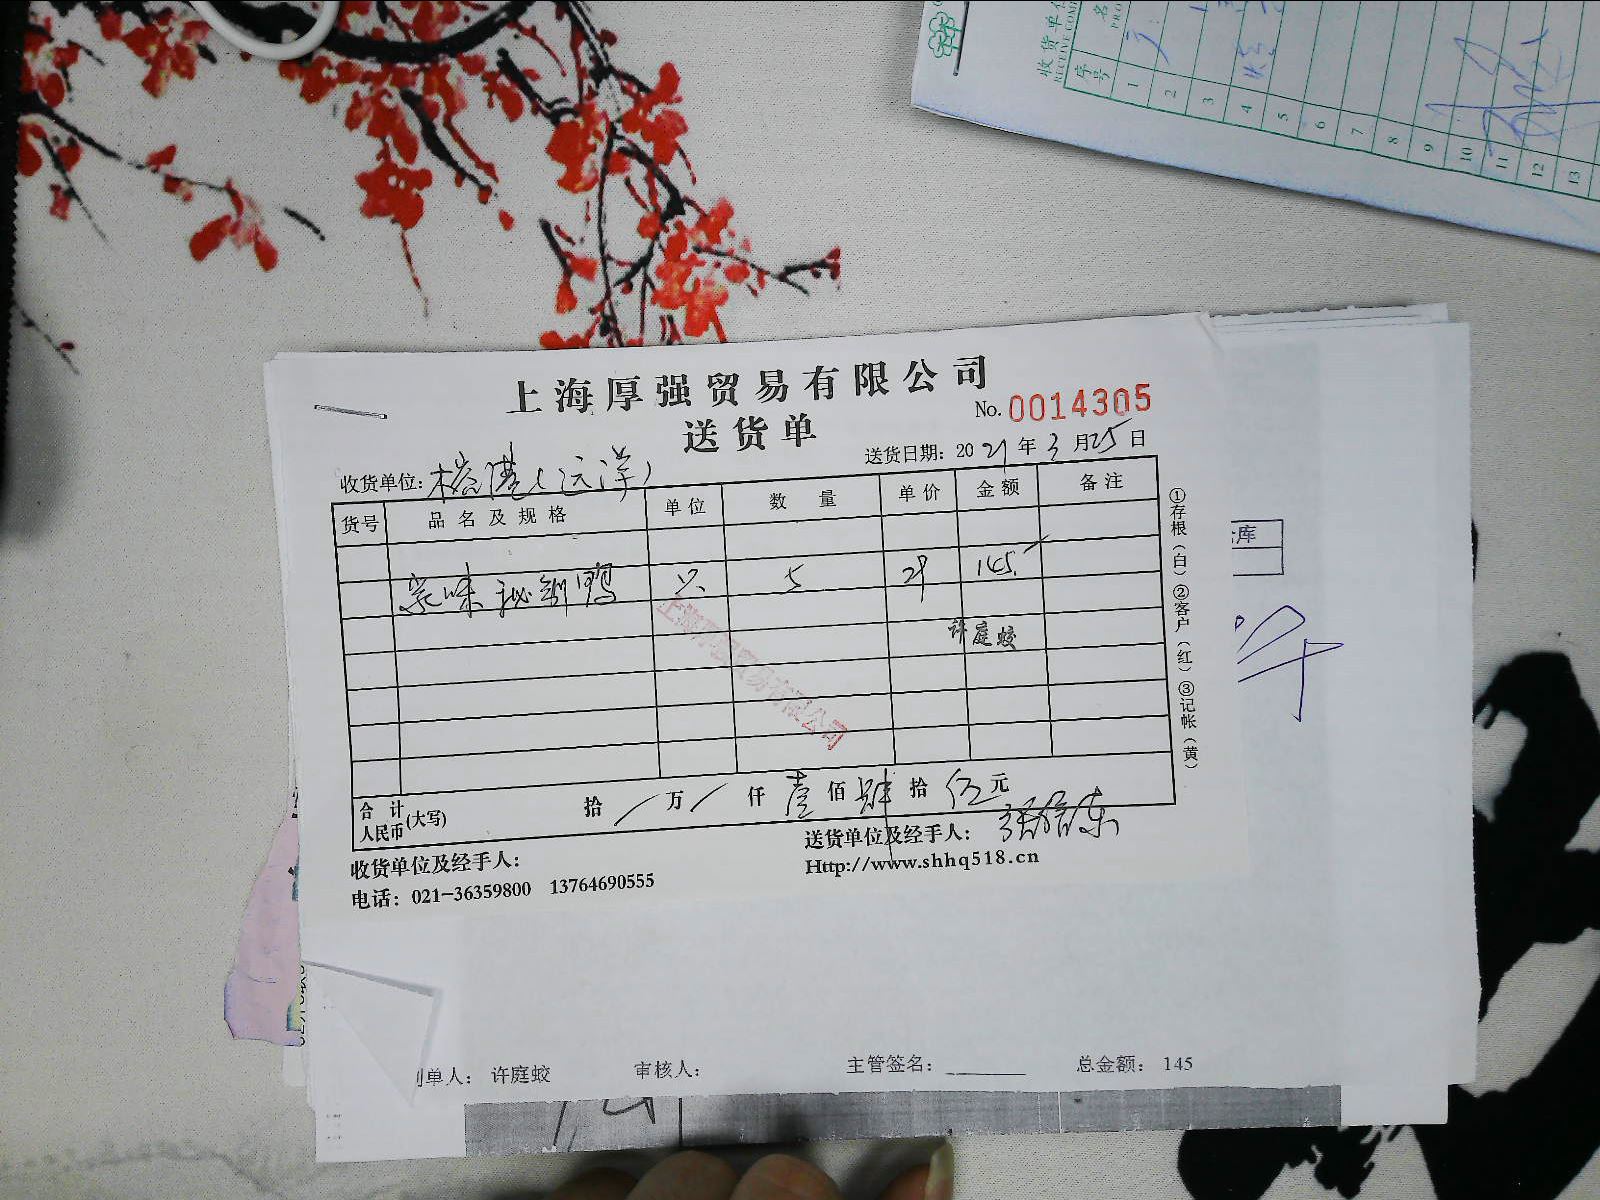 收货单位
RECEIVE COM
序号
1
2
3
4
5
6
7
8
9
10
11
12
13
上海厚强贸易有限公司
No. 0014305
送货单
送货日期: 2021年3月25日
收货单位: 榕港(远洋)
货号 品名及规格 单位 数量 单价 金额 备注
家味秘制鸭 只 5 29 145.
许庭蛟
上海厚强贸易有限公司
合计 人民币 (大写) 拾 / 万 / 仟 壹 佰 肆 拾 伍 元
收货单位及经手人:
送货单位及经手人:
电话: 021-36359800 13764690555
Http://www.shhq518.cn
①存根(白)②客户(红)③记帐(黄)
库
制单人: 许庭蛟 审核人: 主管签名: 总金额: 145